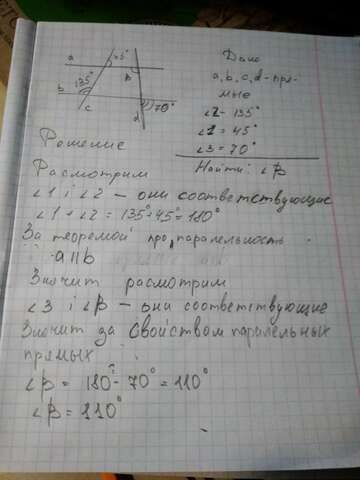 a
45°
β
135°
b
c
d
70°
Дано
a, b, c, d - пря-
мые
∠2 - 135°
∠1 = 45°
∠3 = 70°
Найти: ∠β
Решение
Расмотрим
∠1 і ∠2 - они соответствующие
∠1 + ∠2 = 135° + 45° = 180°
За теоремой про паралельность
a || b
Значит расмотрим
∠3 і ∠β - они соответствующие
Значит за Свойством паралельных
прямых :
∠β = 180° - 70° = 110°
∠β = 110°